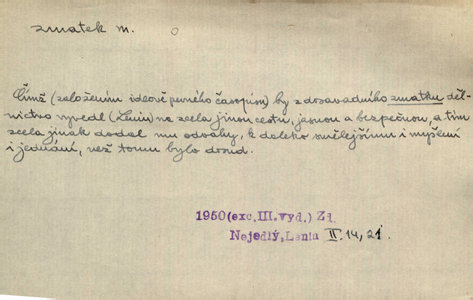 zmatek m.
Čímž (založením ideově pevného časopisu) by z dosavadního zmatku děl-
nictvo vyvedl (Lenin) na zcela jinou cestu, jasnou a bezpečnou, a tím
zcela jinak dodal mu odvahy, k daleko smělejšímu i myšlení
i jednání, než tomu bylo dosud.
1950 (exc.III.vyd.) Zd.
Nejedlý, Lenin II. 14, 21